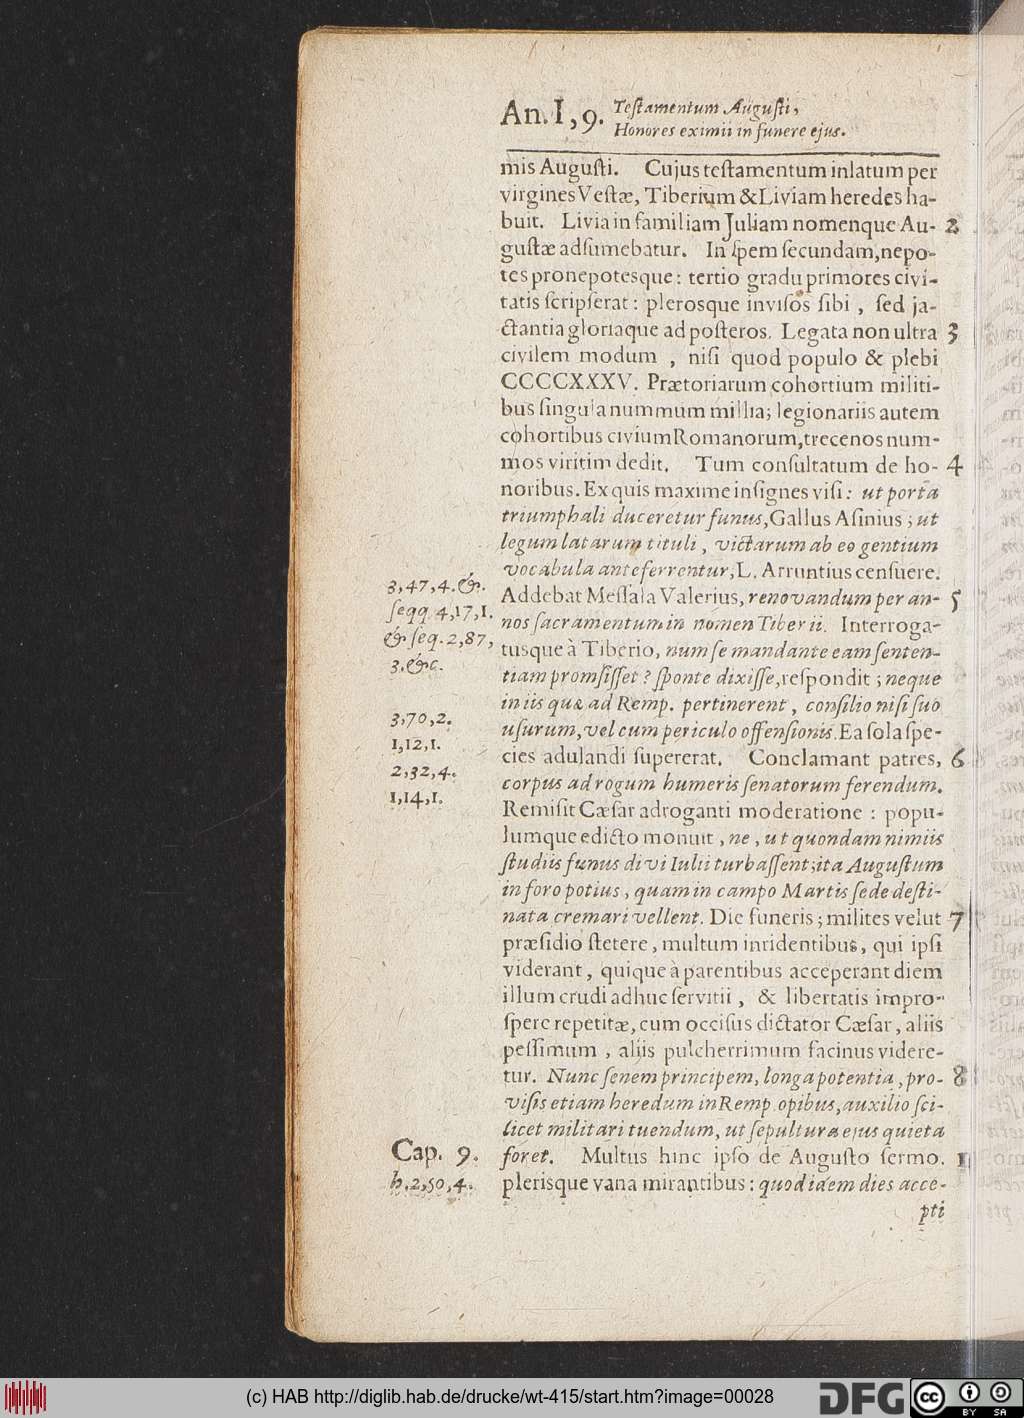 An. I, 9. Teſtamentum Auguſti,
Honores eximii in funere ejus.
mis Auguſti. Cujus teſtamentum inlatum per
virgines Veſtæ, Tiberium & Liviam heredes ha-
buit. Livia in familiam Juliam nomenque Au- 2
guſtæ adſumebatur. In ſpem ſecundam, nepo-
tes pronepotesque: tertio gradu primores civi-
tatis ſcripſerat: plerosque inviſos ſibi, ſed ja-
ctantia gloriaque ad poſteros. Legata non ultra 3
civilem modum, niſi quod populo & plebi
CCCCXXXV. Prætoriarum cohortium militi-
bus ſingula nummum millia; legionariis autem
cohortibus civium Romanorum, trecenos num-
mos viritim dedit. Tum conſultatum de ho- 4
noribus. Ex quis maxime inſignes viſi: ut porta
triumphali duceretur funus, Gallus Aſinius; ut
legum latarum tituli, victarum ab eo gentium
vocabula anteferrentur, L. Arruntius cenſuere.
3,47,4. &.
Addebat Meſſala Valerius, renovandum per an- 5
ſeqq. 4,17,1.
nos ſacramentum in nomen Tiberii. Interroga-
& ſeq. 2,87,
tusque à Tiberio, num ſe mandante eam ſenten-
3. &c.
tiam promſiſſet? ſponte dixiſſe, reſpondit; neque
in iis quæ ad Remp. pertinerent, conſilio niſi ſuo
3,70,2.
uſurum, vel cum periculo offenſionis. Ea ſola ſpe-
1,12,1.
cies adulandi ſupererat. Conclamant patres, 6
2,32,4.
corpus ad rogum humeris ſenatorum ferendum.
1,14,1.
Remiſit Cæſar adroganti moderatione: popu-
lumque edicto monuit, ne, ut quondam nimiis
ſtudiis funus divi Iulii turbaſſent; ita Auguſtum
in foro potius, quam in campo Martis ſede deſti-
nata cremari vellent. Die funeris; milites velut 7
præſidio ſtetere, multum inridentibus, qui ipſi
viderant, quique à parentibus acceperant diem
illum crudi adhuc ſervitii, & libertatis impro-
ſpere repetitæ, cum occiſus dictator Cæſar, aliis
peſſimum, aliis pulcherrimum facinus videre-
tur. Nunc ſenem principem, longa potentia, pro- 8
viſis etiam heredum in Remp. opibus, auxilio ſci-
licet militari tuendum, ut ſepultura ejus quieta
Cap. 9.
foret. Multus hinc ipſo de Auguſto ſermo. 1
h. 2,50,4.
plerisque vana mirantibus: quod idem dies acce-
pti
(c) HAB http://diglib.hab.de/drucke/wt-415/start.htm?image=00028
DFG
cc BY SA